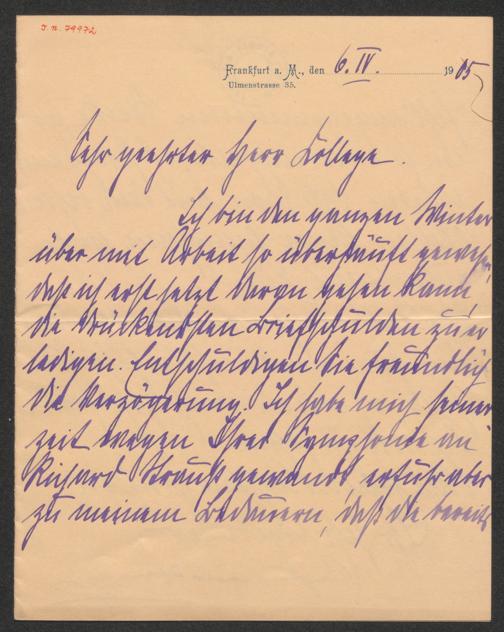 I. N. 79972
Frankfurt a. M., den 6. IV. 1905
Ulmenstrasse 35.
Sehr geehrter Herr College.
Ich bin den ganzen Winter
über mit Arbeit so überhäuft gewesen,
daß ich erst jetzt daran gehen kann,
die drückendsten Briefschulden zu er
ledigen. Entschuldigen Sie freundlich
die Verzögerung. Ich habe mich seiner
zeit wegen Ihrer Symphonie an
Richard Strauß gewandt, erfuhr aber
zu meinem Bedauern, daß die bereits